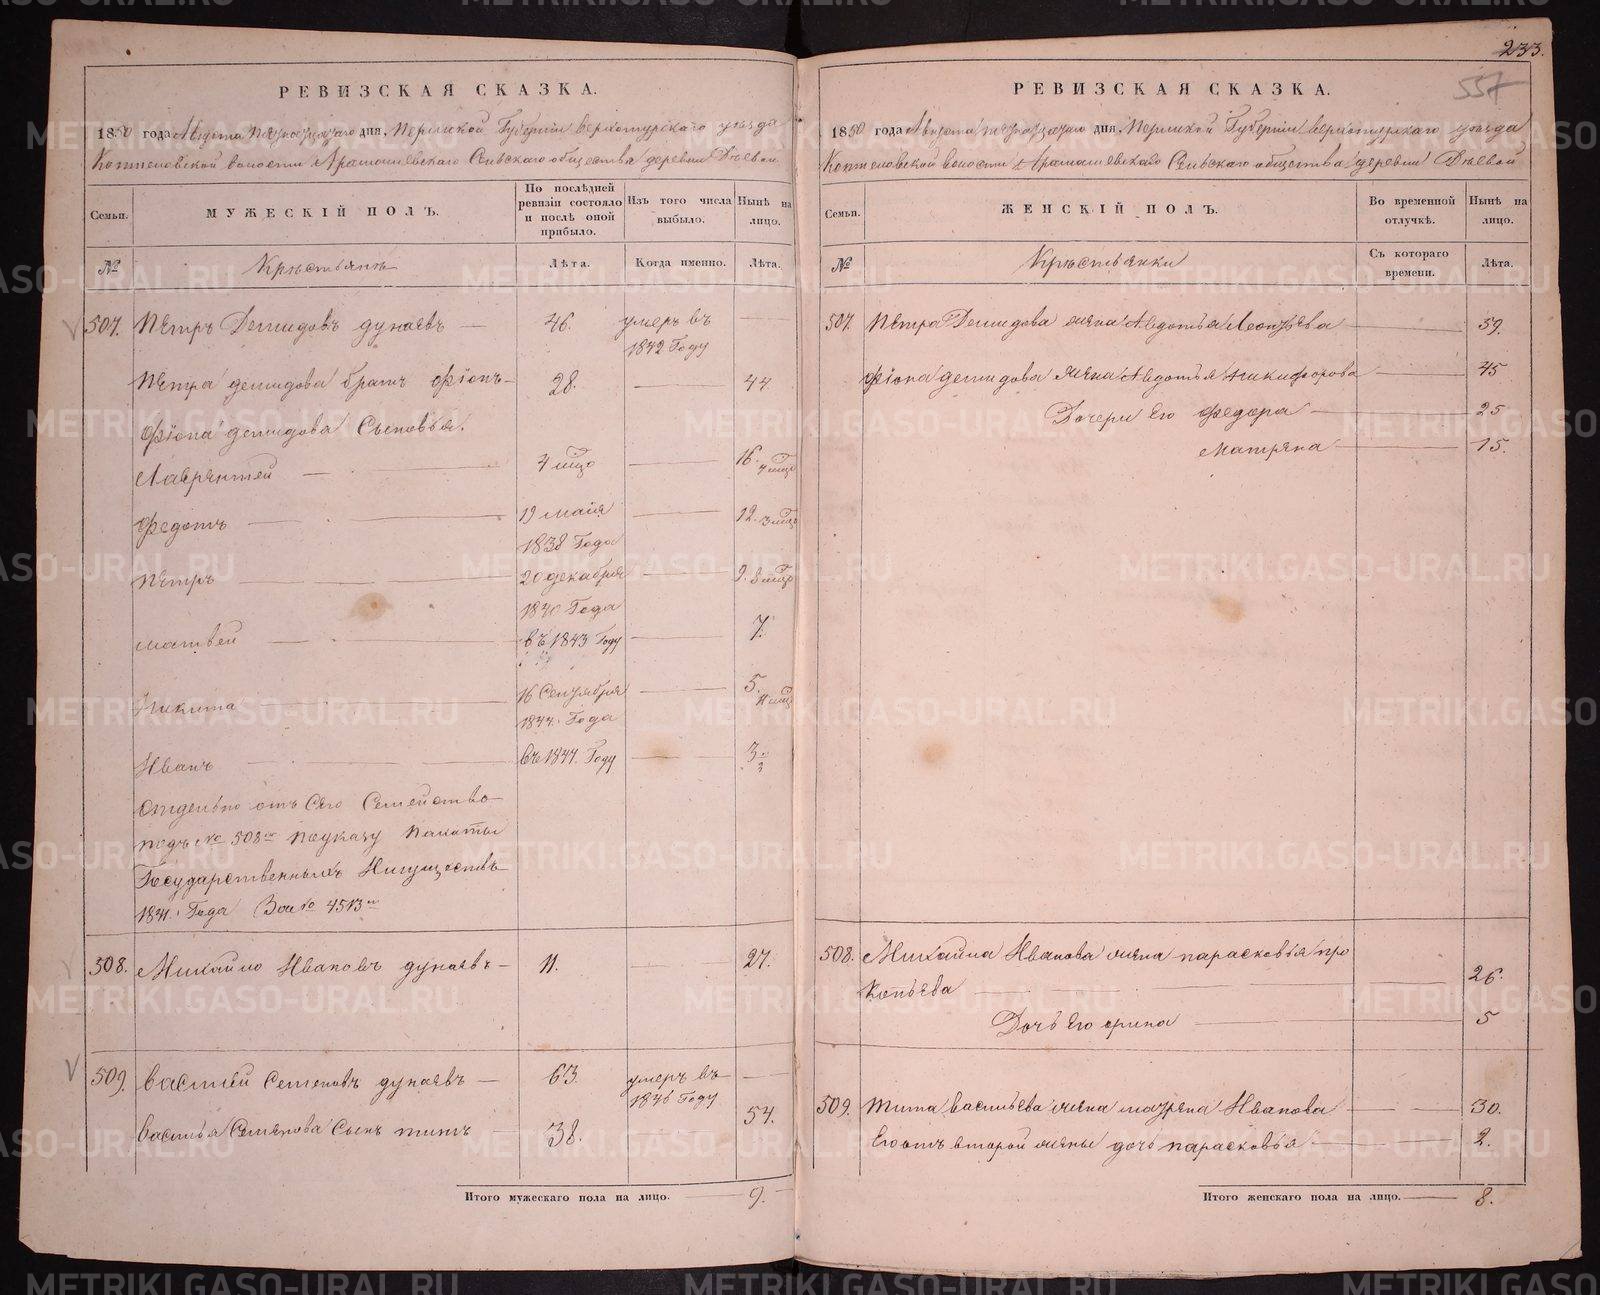 233.
557
РЕВИЗСКАЯ СКАЗКА.
1850 года Августа дня, Пермской Губернiи верхотурскаго уезда
Коптеловской волости Арамашевскаго Сельскаго общества деревни Дѣевой
Семьи.
МУЖЕСКIЙ ПОЛЪ.
По послѣдней ревизiи состояло и послѣ оной прибыло.
Изъ того числа выбыло.
Нынѣ на лицо.
№
Крѣстьянѣ
Лѣта.
Когда именно.
Лѣта.
507. Пѣтръ Демидовъ дунаевъ — 46. умеръ въ —
1842 Году
Пѣтра демидова братъ Фiонъ — 28. — 44
Фiона демидова Сыновья.
Лаврѣнтей — 4 мцо — 16. 4 мцо
Федотъ — 19 майя — 12. 3 мцо
1838 Года
Пѣтръ — 20 декабря — 9. 8 мцо
1840 Года
матвей — въ 1843 Году — 7.
Никита — 16 Сентября — 5. 11 мцо
1844. Года
Иванъ — въ 1847. Году — 3.
Отдельно отъ Сего Семейство
подъ № 508 поуказу Палаты
Государственныхъ Имуществъ
1841. Года За № 4513
508. Михайло Ивановъ дунаевъ — 11. — 27.
509. василей Семеновъ дунаевъ — 63. умеръ въ —
1846 Году
василья Семенова Сынъ титъ — 38. 54.
Итого мужескаго пола на лицо. — 9. —
РЕВИЗСКАЯ СКАЗКА.
1850 года Августа дня, Пермской Губернiи верхотурскаго уезда
Коптеловской волости Арамашевскаго Сельскаго общества деревни Дѣевой
Семьи.
ЖЕНСКIЙ ПОЛЪ.
Во временной отлучкѣ.
Нынѣ на лицо.
№
Крѣстьянки
Съ котораго времени.
Лѣта.
507. Пѣтра Демидова жена Авдотья Леонтьева — 59.
Фiона демидова жена Авдотья Никифорова — 45
Дочери Его Федора — 25
Матряна — 15.
508. Михайла Иванова жена парасковья про
копьева — 26.
Дочь Его орина — 5
509. тита васильева жена матряна Иванова — 30.
Его отъ второй жены дочь парасковья — 2.
Итого женскаго пола на лицо. — 8.
METRIKI.GASO-URAL.RU